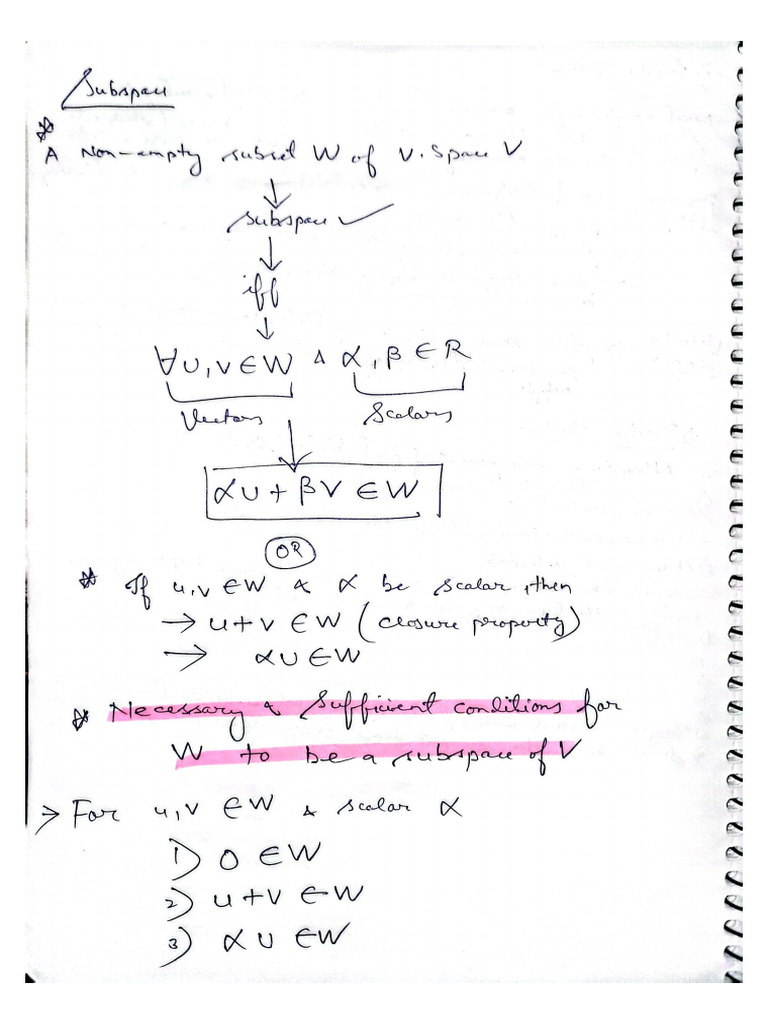 Subspace
A Non-empty subset W of V. Space V
↓
subspace ✓
↓
iff
↓
∀ u, v ∈ W & α, β ∈ R
Vectors Scalars
↓
αu + βv ∈ W
OR
* If u, v ∈ W & α be scalar, then
→ u + v ∈ W (closure property)
→ αu ∈ W
* Necessary & Sufficient conditions for
W to be a subspace of V
→ For u, v ∈ W & scalar α
1) 0 ∈ W
2) u + v ∈ W
3) αu ∈ W